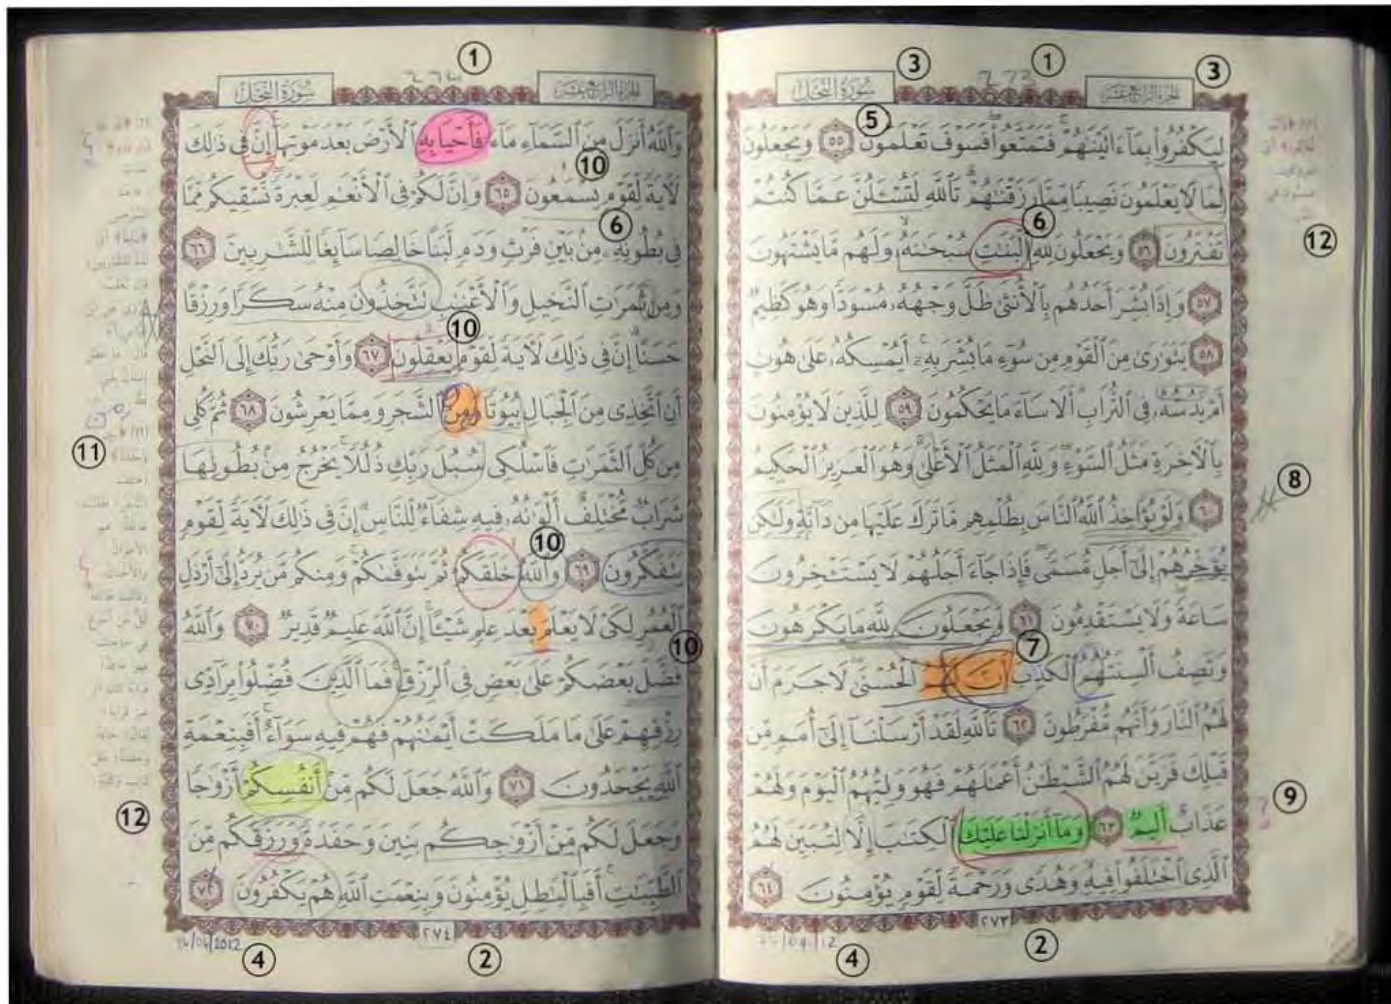 الجزء الرابع عشر
سورة النحل
لِيَكْفُرُوا۟ بِمَآ ءَاتَيْنَٰهُمْ ۚ فَتَمَتَّعُوا۟ ۖ فَسَوْفَ تَعْلَمُونَ ٥٥ وَيَجْعَلُونَ
لِمَا لَا يَعْلَمُونَ نَصِيبًا مِّمَّا رَزَقْنَٰهُمْ ۗ تَٱللَّهِ لَتُسْـَٔلُنَّ عَمَّا كُنتُمْ
تَفْتَرُونَ ٥٦ وَيَجْعَلُونَ لِلَّهِ ٱلْبَنَٰتِ سُبْحَٰنَهُۥ ۙ وَلَهُم مَّا يَشْتَهُونَ
٥٧ وَإِذَا بُشِّرَ أَحَدُهُم بِٱلْأُنثَىٰ ظَلَّ وَجْهُهُۥ مُسْوَدًّا وَهُوَ كَظِيمٌ
٥٨ يَتَوَٰرَىٰ مِنَ ٱلْقَوْمِ مِن سُوٓءِ مَا بُشِّرَ بِهِۦٓ ۚ أَيُمْسِكُهُۥ عَلَىٰ هُونٍ
أَمْ يَدُسُّهُۥ فِى ٱلتُّرَابِ ۗ أَلَا سَآءَ مَا يَحْكُمُونَ ٥٩ لِلَّذِينَ لَا يُؤْمِنُونَ
بِٱلْءَاخِرَةِ مَثَلُ ٱلسَّوْءِ ۖ وَلِلَّهِ ٱلْمَثَلُ ٱلْأَعْلَىٰ ۚ وَهُوَ ٱلْعَزِيزُ ٱلْحَكِيمُ
٦٠ وَلَوْ يُؤَاخِذُ ٱللَّهُ ٱلنَّاسَ بِظُلْمِهِم مَّا تَرَكَ عَلَيْهَا مِن دَآبَّةٍ وَلَٰكِن
يُؤَخِّرُهُمْ إِلَىٰٓ أَجَلٍ مُّسَمًّى ۖ فَإِذَا جَآءَ أَجَلُهُمْ لَا يَسْتَـْٔخِرُونَ
سَاعَةً ۖ وَلَا يَسْتَقْدِمُونَ ٦١ وَيَجْعَلُونَ لِلَّهِ مَا يَكْرَهُونَ
وَتَصِفُ أَلْسِنَتُهُمُ ٱلْكَذِبَ أَنَّ لَهُمُ ٱلْحُسْنَىٰ ۖ لَا جَرَمَ أَنَّ
لَهُمُ ٱلنَّارَ وَأَنَّهُم مُّفْرَطُونَ ٦٢ تَٱللَّهِ لَقَدْ أَرْسَلْنَآ إِلَىٰٓ أُمَمٍ مِّن
قَبْلِكَ فَزَيَّنَ لَهُمُ ٱلشَّيْطَٰنُ أَعْمَٰلَهُمْ فَهُوَ وَلِيُّهُمُ ٱلْيَوْمَ وَلَهُمْ
عَذَابٌ أَلِيمٌ ٦٣ وَمَآ أَنزَلْنَا عَلَيْكَ ٱلْكِتَٰبَ إِلَّا لِتُبَيِّنَ لَهُمُ
ٱلَّذِى ٱخْتَلَفُوا۟ فِيهِ ۙ وَهُدًى وَرَحْمَةً لِّقَوْمٍ يُؤْمِنُونَ ٦٤
٢٧٣
الجزء الرابع عشر
سورة النحل
وَٱللَّهُ أَنزَلَ مِنَ ٱلسَّمَآءِ مَآءً فَأَحْيَا بِهِ ٱلْأَرْضَ بَعْدَ مَوْتِهَآ ۚ إِنَّ فِى ذَٰلِكَ
لَءَايَةً لِّقَوْمٍ يَسْمَعُونَ ٦٥ وَإِنَّ لَكُمْ فِى ٱلْأَنْعَٰمِ لَعِبْرَةً ۖ نُّسْقِيكُم مِّمَّا
فِى بُطُونِهِۦ مِنۢ بَيْنِ فَرْثٍ وَدَمٍ لَّبَنًا خَالِصًا سَآئِغًا لِّلشَّٰرِبِينَ ٦٦
وَمِن ثَمَرَٰتِ ٱلنَّخِيلِ وَٱلْأَعْنَٰبِ تَتَّخِذُونَ مِنْهُ سَكَرًا وَرِزْقًا
حَسَنًا ۗ إِنَّ فِى ذَٰلِكَ لَءَايَةً لِّقَوْمٍ يَعْقِلُونَ ٦٧ وَأَوْحَىٰ رَبُّكَ إِلَى ٱلنَّحْلِ
أَنِ ٱتَّخِذِى مِنَ ٱلْجِبَالِ بُيُوتًا وَمِنَ ٱلشَّجَرِ وَمِمَّا يَعْرِشُونَ ٦٨ ثُمَّ كُلِى
مِن كُلِّ ٱلثَّمَرَٰتِ فَٱسْلُكِى سُبُلَ رَبِّكِ ذُلُلًا ۚ يَخْرُجُ مِنۢ بُطُونِهَا
شَرَابٌ مُّخْتَلِفٌ أَلْوَٰنُهُۥ فِيهِ شِفَآءٌ لِّلنَّاسِ ۗ إِنَّ فِى ذَٰلِكَ لَءَايَةً لِّقَوْمٍ
يَتَفَكَّرُونَ ٦٩ وَٱللَّهُ خَلَقَكُمْ ثُمَّ يَتَوَفَّىٰكُمْ ۚ وَمِنكُم مَّن يُرَدُّ إِلَىٰٓ أَرْذَلِ
ٱلْعُمُرِ لِكَىْ لَا يَعْلَمَ بَعْدَ عِلْمٍ شَيْـًٔا ۚ إِنَّ ٱللَّهَ عَلِيمٌ قَدِيرٌ ٧٠ وَٱللَّهُ
فَضَّلَ بَعْضَكُمْ عَلَىٰ بَعْضٍ فِى ٱلرِّزْقِ ۚ فَمَا ٱلَّذِينَ فُضِّلُوا۟ بِرَآدِّى
رِزْقِهِمْ عَلَىٰ مَا مَلَكَتْ أَيْمَٰنُهُمْ فَهُمْ فِيهِ سَوَآءٌ ۚ أَفَبِنِعْمَةِ
ٱللَّهِ يَجْحَدُونَ ٧١ وَٱللَّهُ جَعَلَ لَكُم مِّنْ أَنفُسِكُمْ أَزْوَٰجًا
وَجَعَلَ لَكُم مِّنْ أَزْوَٰجِكُم بَنِينَ وَحَفَدَةً وَرَزَقَكُم مِّنَ
ٱلطَّيِّبَٰتِ ۚ أَفَبِٱلْبَٰطِلِ يُؤْمِنُونَ وَبِنِعْمَتِ ٱللَّهِ هُمْ يَكْفُرُونَ ٧٢
٢٧٤
26/06/2012
1
1
3
3
5
10
6
6
12
10
11
8
10
10
7
9
12
4
2
4
2